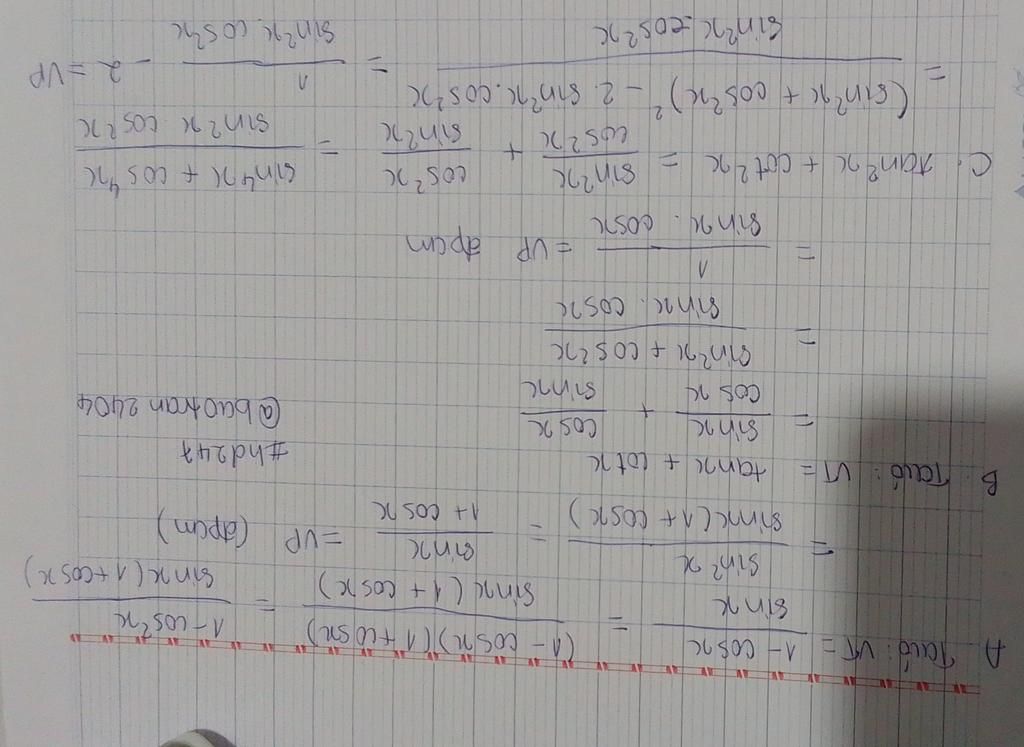 A Ta có: VT = (1 - cosx)/(sinx) = ((1 - cosx)(1 + cosx))/(sinx(1 + cosx)) = (1 - cos²x)/(sinx(1 + cosx))
= (sin²x)/(sinx(1 + cosx)) = (sinx)/(1 + cosx) = VP (đpcm)
B. Ta có: VT = tanx + cotx
#hd247
= (sinx)/(cosx) + (cosx)/(sinx)
@baotran2404
= (sin²x + cos²x)/(sinx . cosx)
= 1/(sinx . cosx) = VP đpcm
C. tan²x + cot²x = (sin²x)/(cos²x) + (cos²x)/(sin²x) = (sin⁴x + cos⁴x)/(sin²x . cos²x)
= ((sin²x + cos²x)² - 2 sin²x . cos²x)/(sin²x . cos²x) = 1/(sin²x . cos²x) - 2 = VP